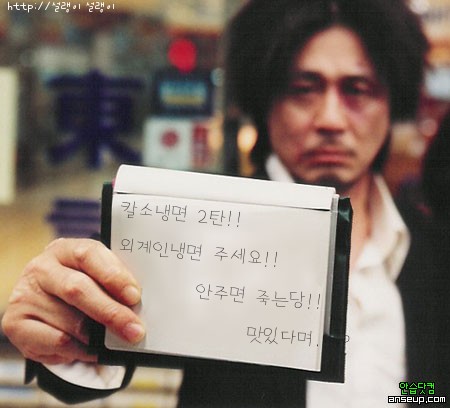 http://설랭이 설랭이
東
칼소냉면 2탄!!
외계인냉면 주세요!!
안주면 죽는당!!
맛있다며.
안습닷컴
anseup.com